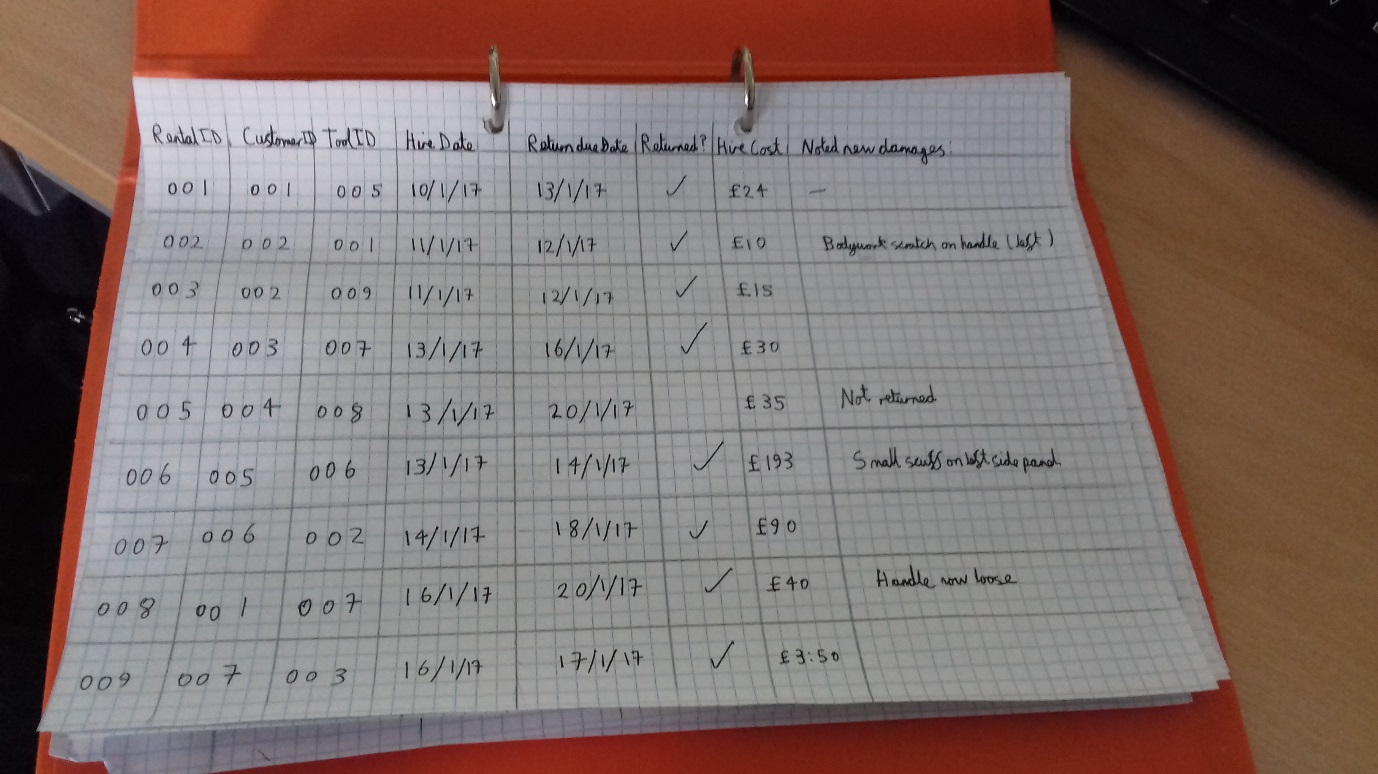 RentalID CustomerID ToolID Hire Date Return due Date Returned? Hire Cost Noted new damages:
001 001 005 10/1/17 13/1/17 ✓ £24 —
002 002 001 11/1/17 12/1/17 ✓ £10 Bodywork scratch on handle (left)
003 002 009 11/1/17 12/1/17 ✓ £15
004 003 007 13/1/17 16/1/17 ✓ £30
005 004 008 13/1/17 20/1/17 £35 Not returned
006 005 006 13/1/17 14/1/17 ✓ £193 Small scuff on left side panel
007 006 002 14/1/17 18/1/17 ✓ £90
008 001 007 16/1/17 20/1/17 ✓ £40 Handle now loose
009 007 003 16/1/17 17/1/17 ✓ £3:50